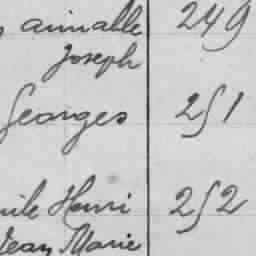 aimable 249
Joseph
Georges 251
Henri 252
Jean Marie